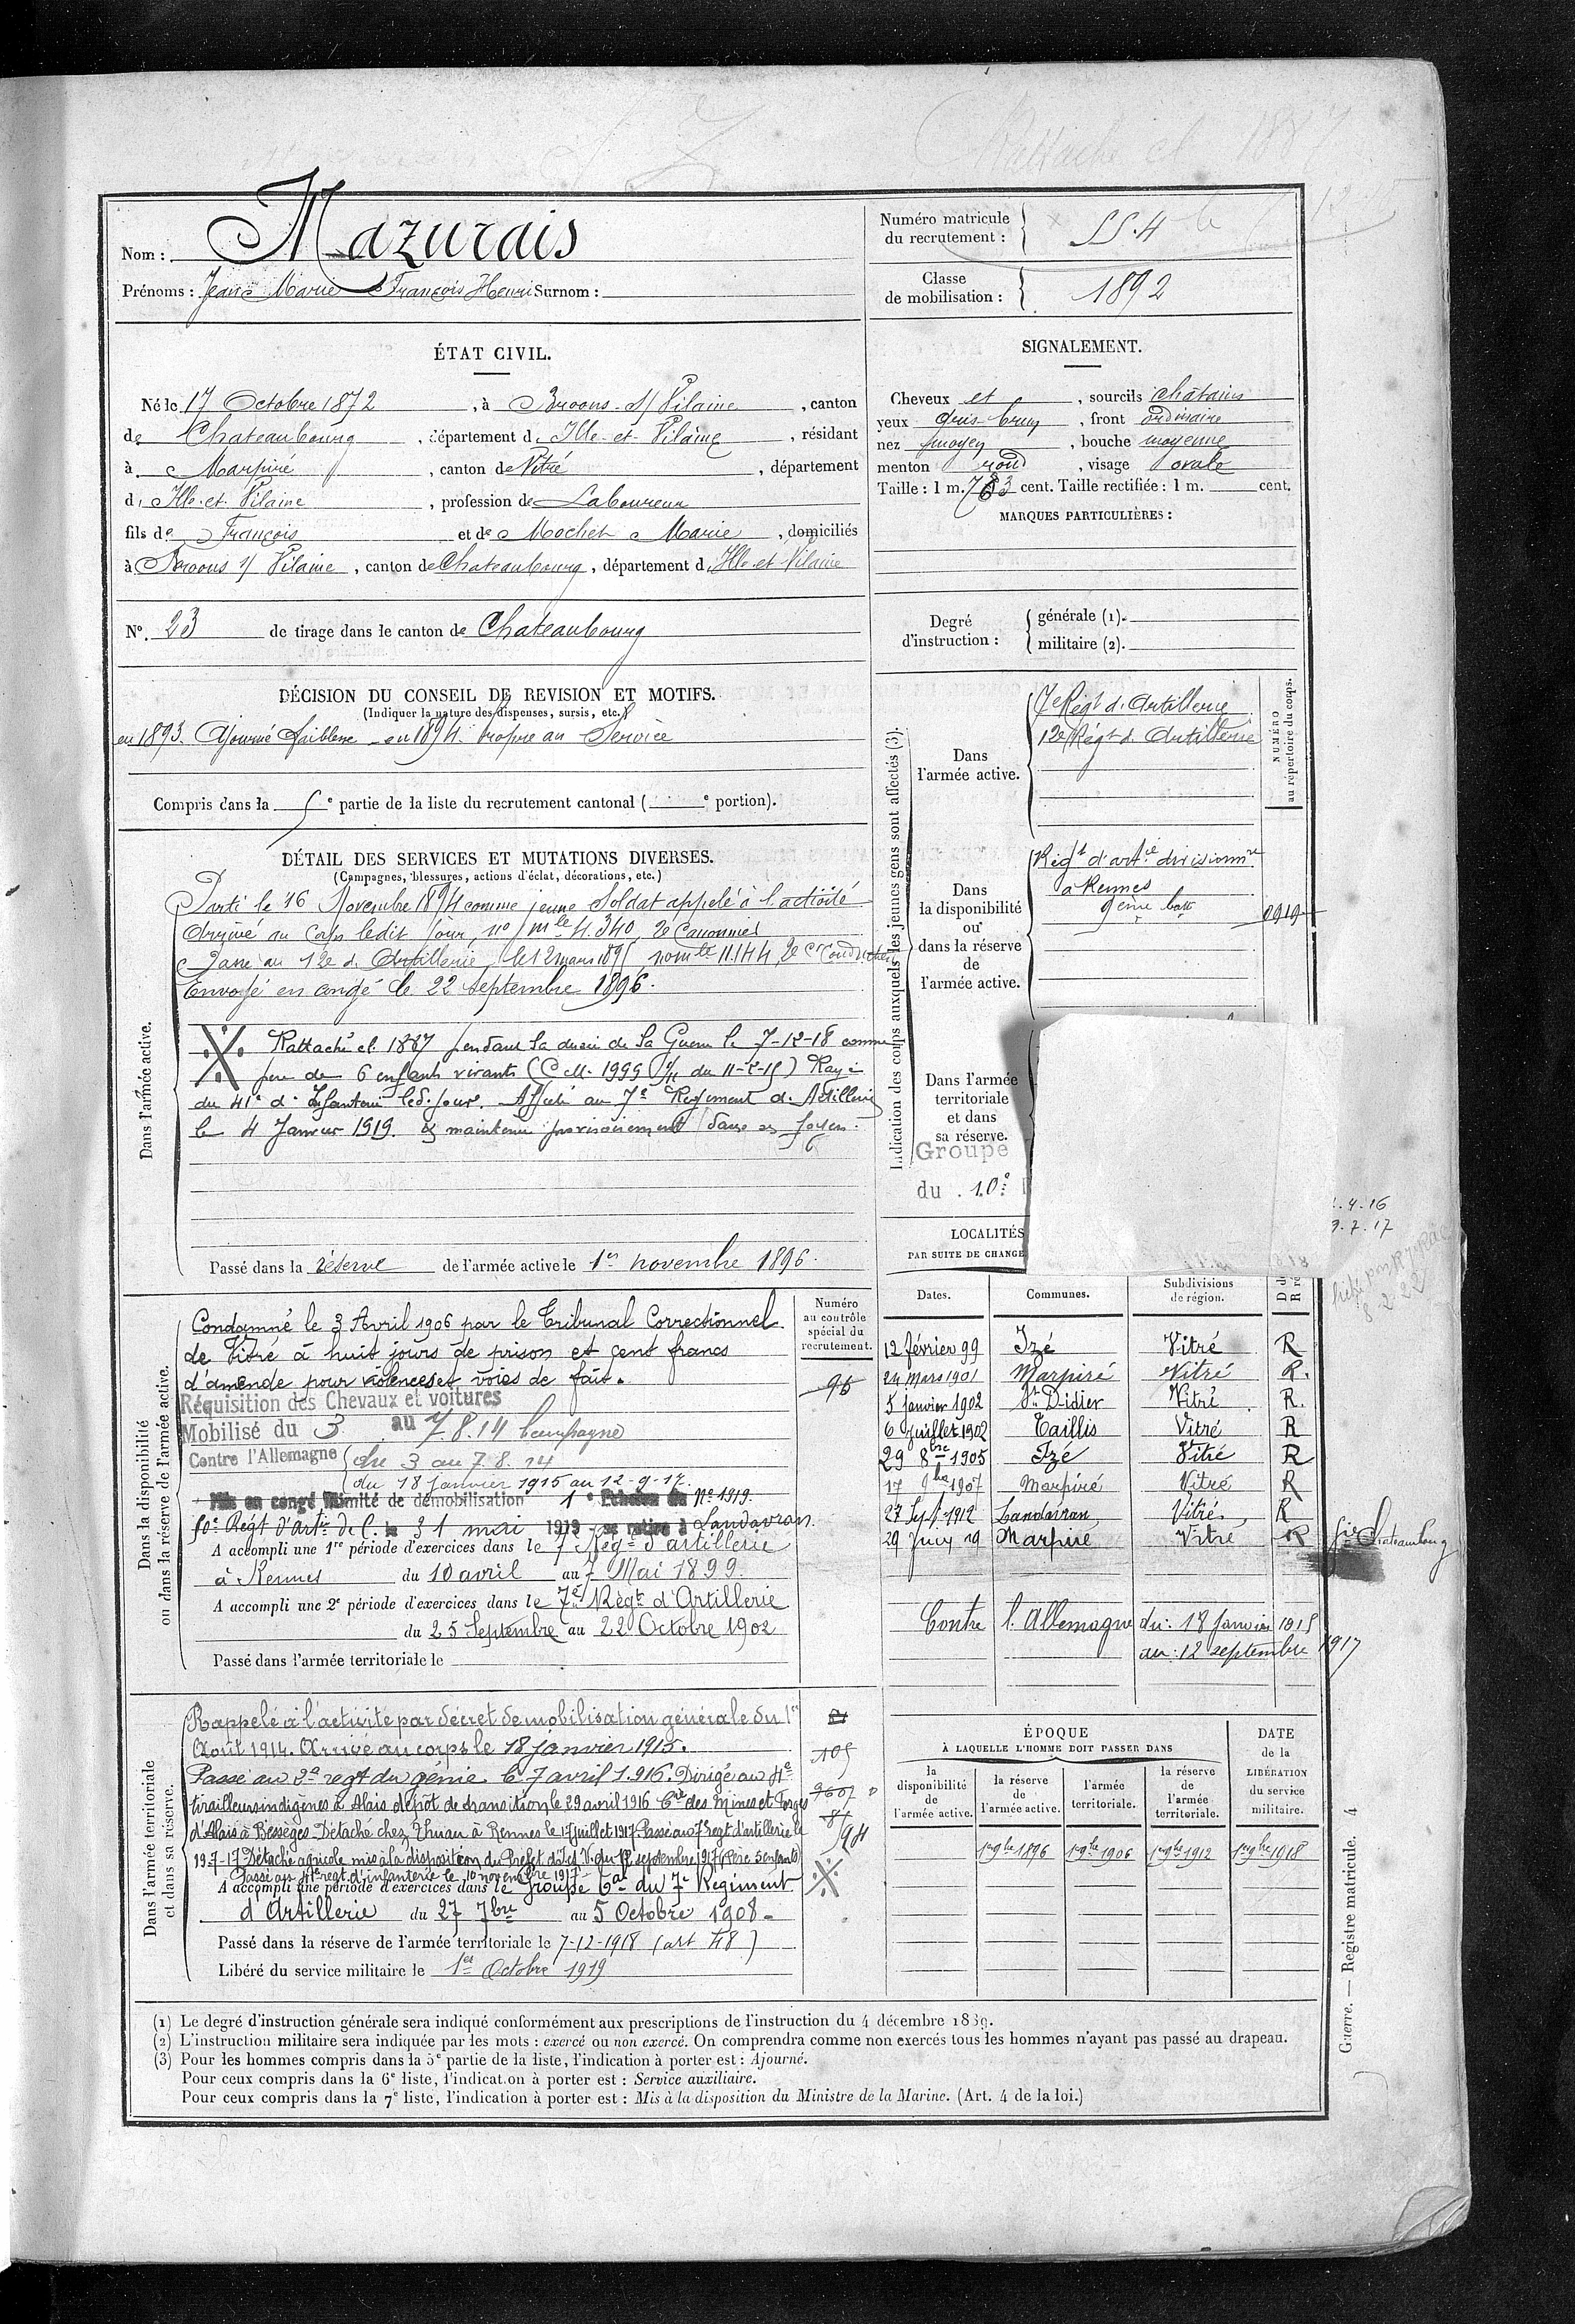 Nom : Mazurais
Prénoms : Jean Marie François Henri Surnom :
Numéro matricule du recrutement :
Classe de mobilisation : 1892
ÉTAT CIVIL.
Né le 17 Octobre 1872, à Broons-s/Vilaine, canton
de Chateaubourg, département d Ille-et-Vilaine, résidant
à Marpiré, canton de Vitré, département
d Ille-et-Vilaine, profession de Laboureur
fils de François et de Mochet Marie, domiciliés
à Broons s/ Vilaine, canton de Chateaubourg, département d Ille-et-Vilaine
N°. 23 de tirage dans le canton de Chateaubourg
SIGNALEMENT.
Cheveux et, sourcils chatains
yeux gris brun, front ordinaire
nez moyen, bouche moyenne
menton rond, visage ovale
Taille : 1 m. cent. Taille rectifiée : 1 m. cent.
MARQUES PARTICULIÈRES :
Degré d'instruction :
générale (1).
militaire (2).
DÉCISION DU CONSEIL DE REVISION ET MOTIFS.
(Indiquer la nature des dispenses, sursis, etc.)
en 1893. Ajourné faiblesse - en 1894. Propre au Service
Compris dans la 5e partie de la liste du recrutement cantonal ( e portion).
DÉTAIL DES SERVICES ET MUTATIONS DIVERSES.
(Campagnes, blessures, actions d'éclat, décorations, etc.)
Dans l'armée active.
Parti le 16 Novembre 1894 comme jeune Soldat appelé à l'activité
Arrivé au Corps ledit jour, no mle 4.340, 2e Canonnier
Passé au 12e d. Artillerie, le 12 mars 1895 no mle 11.144, 2e Cr Conducteur
Envoyé en congé le 22 Septembre 1896.
Rattaché cl. 1887 pendant la durée de la Guerre le 7-12-18 comme
père de 6 enfants vivants Rayé
du 41e d'Infanterie led. jour. Affecté au 7e Régiment d'Artillerie
le 4 Janvier 1919. & maintenu provisoirement dans ses foyers.
Passé dans la réserve de l'armée active le 1er novembre 1896.
Indication des corps auxquels les jeunes gens sont affectés (3).
NUMÉRO au répertoire du corps.
Dans l'armée active.
7e Régt d. Artillerie
12e Régt d. Artillerie
Dans la disponibilité ou dans la réserve de l'armée active.
Régt d'artie divisionnre
à Rennes
9ème batt
Dans l'armée territoriale et dans sa réserve.
Groupe
du 10e
LOCALITÉS
PAR SUITE DE CHANGE
Dates. Communes. Subdivisions de région.
12 février 99 Izé Vitré R
24 Mars 1901 Marpiré Vitré R.
5 janvier 1902 St Didier Vitré R.
6 Juillet 1902 Taillis Vitré R
29 8bre 1905 Izé Vitré R
17 9bre 1907 Marpiré Vitré R
27 Sept 1912 Landavran Vitré R
29 Juin 19 Marpiré Vitré R
Contre l'Allemagne du : 18 Janvier 1915
au : 12 septembre 1917
Dans la disponibilité ou dans la réserve de l'armée active.
Numéro au contrôle spécial du recrutement.
96
Condamné le 3 Avril 1906 par le Tribunal Correctionnel
de Vitré à huit jours de prison et cent francs
d'amende pour violences et voies de fait.
Réquisition des Chevaux et voitures
Mobilisé du 3 au 7.8.14 Campagne
Contre l'Allemagne du 3 au 7.8.14
du 18 janvier 1915 au 12-9-17.
Mis en congé illimité de démobilisation 1er Echelon du No 1919.
50e Régt d'Artie de C. le 31 mai 1919 - se retire à Landavran.
A accompli une 1re période d'exercices dans le 7e Régt d'artillerie
à Rennes du 10 avril au 7 Mai 1899.
A accompli une 2e période d'exercices dans le 7e Régt d'Artillerie
du 25 Septembre au 22 Octobre 1902
Passé dans l'armée territoriale le
Dans l'armée territoriale et dans sa réserve.
Rappelé à l'activité par décret de mobilisation générale du 1er
Août 1914. Arrivé au corps le 18 janvier 1915.
Passé au 2e regt du génie le 7 avril 1.916. Dirigé au 4e
tirailleurs indigènes à Alais dépôt de transition le 29 avril 1916 Cie des Mines et Forges
d'Alais à Bessèges. Détaché chez Thuau à Rennes le 17 juillet 1917. Passé au 7e regt d'artillerie le
19-7-17. Détaché agricole mis à la disposition du Préfet d'I et V. du 12 septembre 1917 (Père 5 enfants)
Passé au 41e regt d'infanterie le 10 novembre 1917
A accompli une période d'exercices dans le Groupe tal du 7e Régiment
d'Artillerie du 27 7bre au 5 Octobre 1908.
Passé dans la réserve de l'armée territoriale le 7-12-1918 (art 48)
Libéré du service militaire le 1er Octobre 1919
105
ÉPOQUE
À LAQUELLE L'HOMME DOIT PASSER DANS
la disponibilité de l'armée active.
la réserve de l'armée active.
l'armée territoriale.
la réserve de l'armée territoriale.
DATE de la LIBÉRATION du service militaire.
1er 9bre 1896 1er 9bre 1906 1er 9bre 1912 1er 9bre 1918
(1) Le degré d'instruction générale sera indiqué conformément aux prescriptions de l'instruction du 4 décembre 1889.
(2) L'instruction militaire sera indiquée par les mots : exercé ou non exercé. On comprendra comme non exercés tous les hommes n'ayant pas passé au drapeau.
(3) Pour les hommes compris dans la 5e partie de la liste, l'indication à porter est : Ajourné.
Pour ceux compris dans la 6e liste, l'indication à porter est : Service auxiliaire.
Pour ceux compris dans la 7e liste, l'indication à porter est : Mis à la disposition du Ministre de la Marine. (Art. 4 de la loi.)
Guerre. — Registre matricule. 4